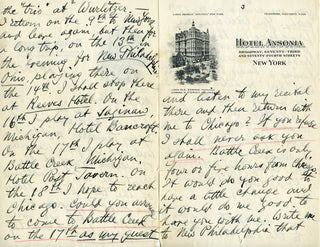 the "trio" at Wurlitzer.
I return on the 9th to New York
and leave again but then for
a long trip, on the 13th in
the evening for New Philadelphia
Ohio, playing there on
the 14th. I shall stop there
at Reeves Hotel. On the
16th I play at Saginaw,
Michigan, Hotel Bancroft
On the 17th I play at
Battle Creek, Michigan,
Hotel Post Tavern. On
the 18th I hope to reach
Chicago. Could you away
to come to Battle Creek
on the 17th as my guest
3
HOTEL ANSONIA
BROADWAY, SEVENTY-THIRD
AND SEVENTY-FOURTH STREETS
NEW YORK
and listen to my recital
there and then return with
me to Chicago? If you refuse
I shall never ask you
again. Battle Creek is only
four or five hours from
It would do you good to
have a little change and
it would do me good to
have you with me. Write me
to New Philadelphia that